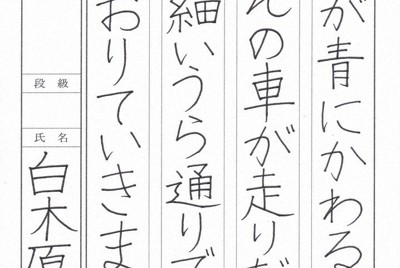 が青にかわる
の車が走りだ
細いうら通りで
おりていきま
段級
氏名
白木原